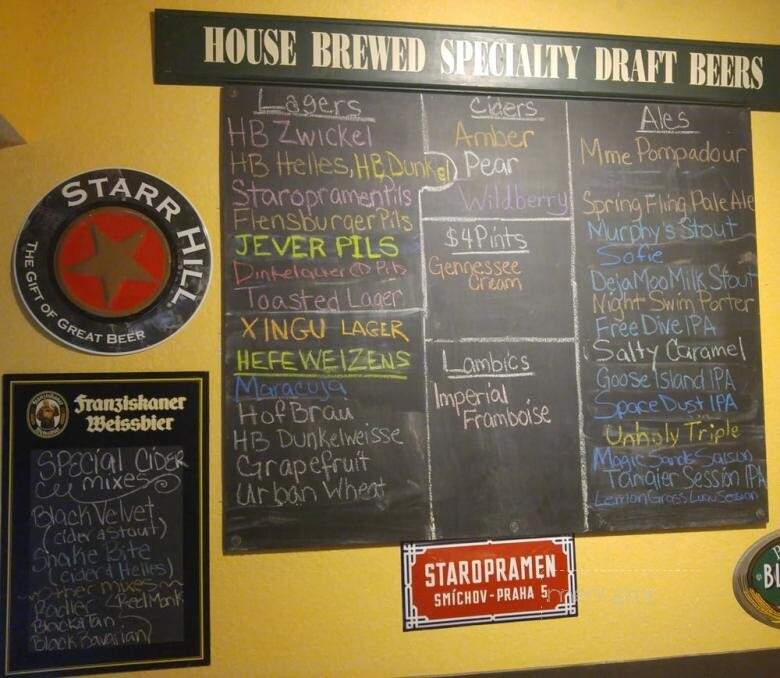 HOUSE BREWED SPECIALTY DRAFT BEERS
Lagers
HB Zwickel
HB Helles, HB Dunkel
Staropramen Pils
Flensburger Pils
JEVER PILS
Pils
Toasted Lager
XINGU LAGER
HEFEWEIZENS
Maracuja
HofBrau
HB Dunkelweisse
Grapefruit
Urban Wheat
Ciders
Amber
Pear
Wildberry
$4 Pints
Gennessee
Cream
Lambics
Imperial
Framboise
Ales
Mme Pompadour
Spring Fling Pale Ale
Murphy's Stout
Sofie
DejaMoo Milk Stout
Night Swim Porter
Free Dive IPA
Salty Caramel
Goose Island IPA
Space Dust IPA
Unholy Triple
Magic Sands Saison
Tangier Session IPA
Lemon Grass Luau Session
STARR HILL
THE GIFT OF GREAT BEER
Franziskaner
Weissbier
SPECIAL CIDER
mixes
Black Velvet
(cider & Stout)
Snake Bite
(cider & Helles)
other mixes
Radler Red Monk
Black & Tan
Black Bavarian
STAROPRAMEN
SMÍCHOV - PRAHA 5
BL